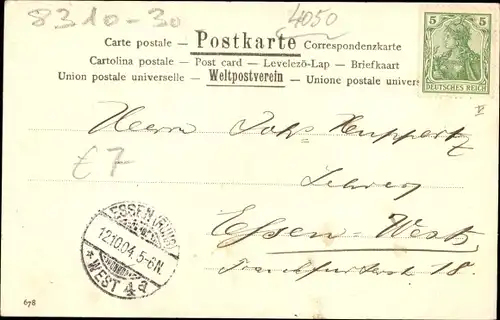 8310-30
4050
Carte postale — Postkarte — Correspondenzkarte
Cartolina postale — Post card — Levelező-Lap — Briefkaart
Union postale universelle — Weltpostverein — Unione postale univers
5 5
DEUTSCHES REICH
Herrn Joh. Huppertz
£7
Lehrer
Essen-West
Frankfurterstr 18.
ESSEN (RUHR)
12.10.04. 5-6N.
* WEST * a
678